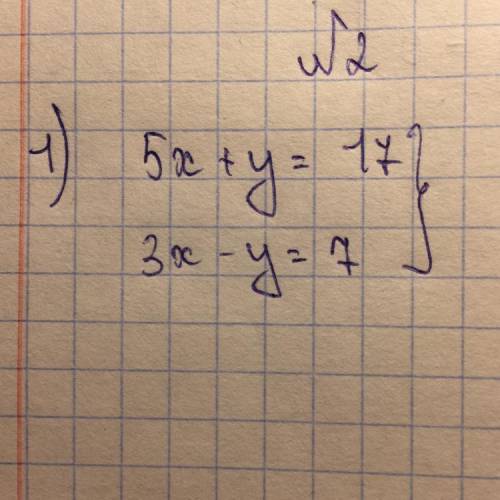 №2
1) 5x + y = 17 }
3x - y = 7